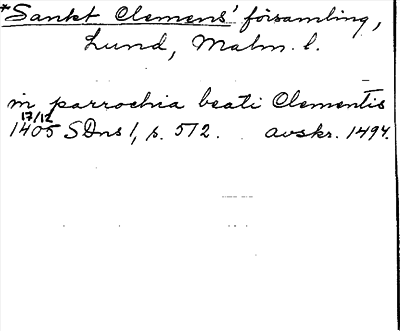 *Sankt Clemens' församling,
Lund, Malm. l.
in parrochia beati Clementis
17/12
1405 SDns 1, s. 512. avskr. 1494.